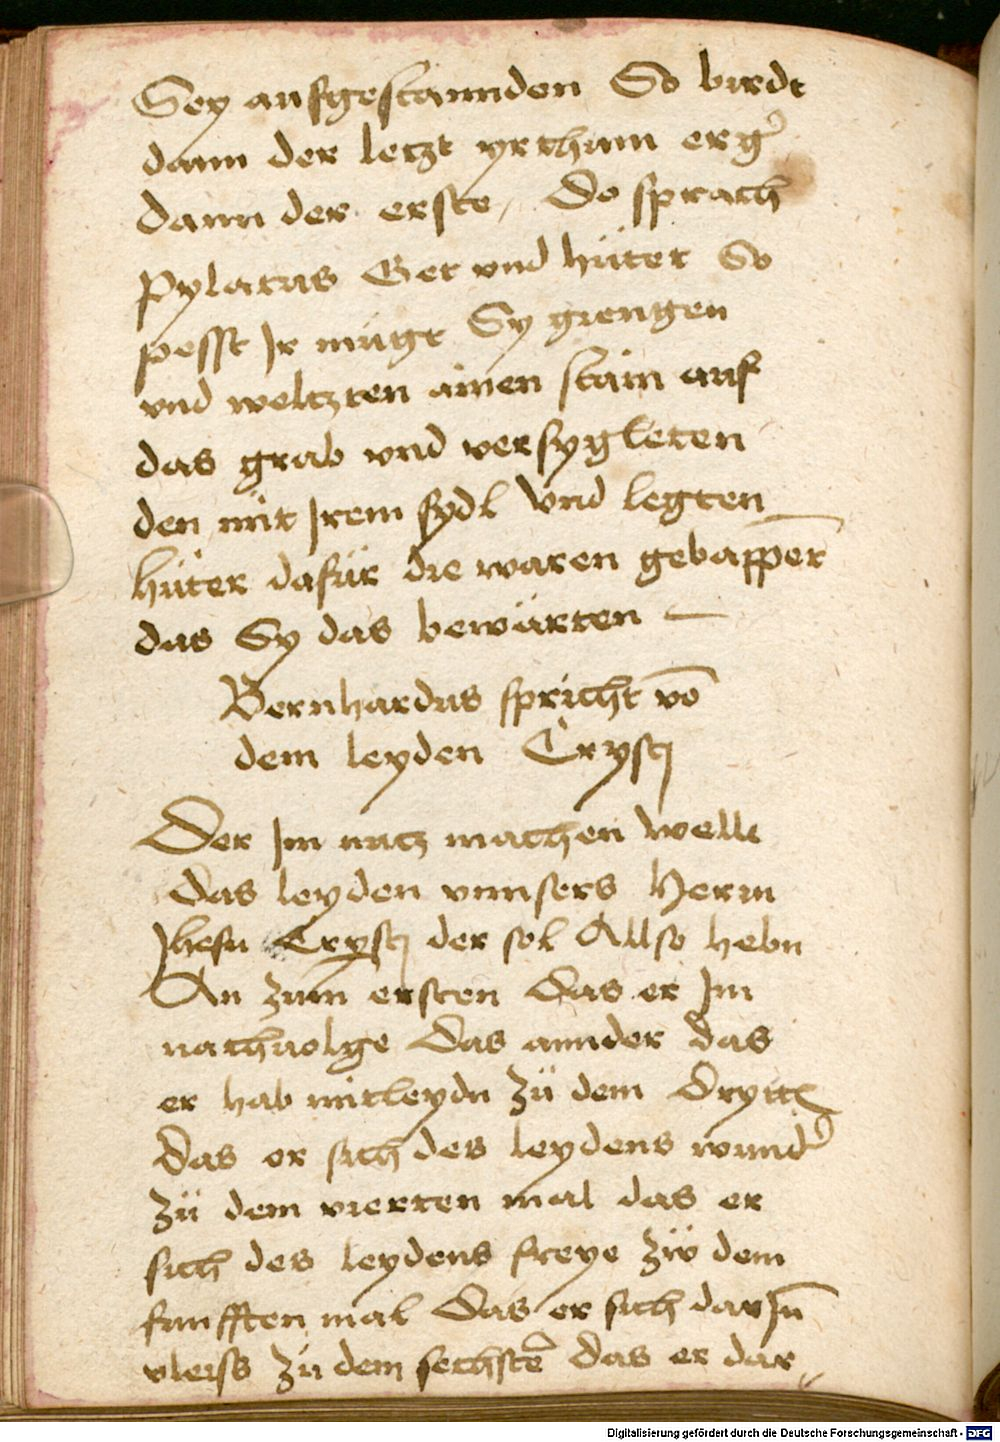 Sey aufgestannden So birdt
dann der letzt yrthum erg᷑
dann der erste / Do sprach
Pylatus Get vnd hüter So
pesst Jr mügt Sy giengen
vnd weltzten ainen stain auf
das grab vnd versygleten
den mit Jrem sydl Vnd legten
hüter dafür die waren gebapp̄er
das Sy das bewarten —
Bernhardus spricht vō
dem leyden Crysti
Der Jm nutz machen wellt
das leyden vnnsers Herrn
Jhesu Crysti der sol Allso hebn
An zum ersten das er Jm
nachuolge Das annder das
er hab mitleydn zü dem Drytt
Das er sich des leydens wund᷑
zü dem vierten mal das er
sich des leydens freye zw dem
funfften mal Das er sich darJn̄
vleiss zü dem sechstē Das er dar⸗
Digitalisierung gefördert durch die Deutsche Forschungsgemeinschaft - DFG